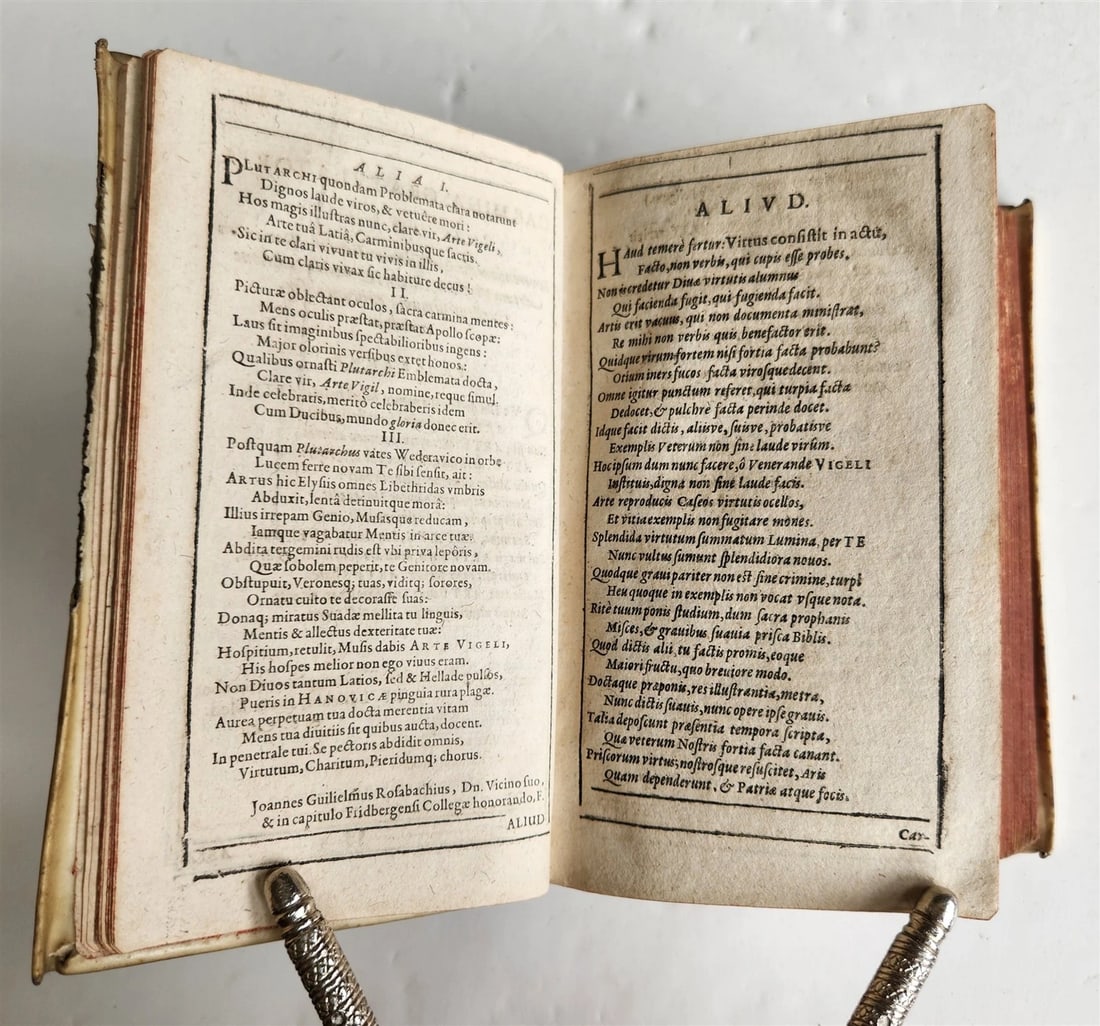 ALIA I.
PLUTARCHI quondam Problemata clara notarunt
Dignos laude viros, & vetuêre mori:
Hos magis illustras nunc, clare vir, Arte Vigeli,
Arte tuâ Latiâ, Carminibusque sactis.
Sic in te clari vivunt tu vivis in illis,
Cum claris vivax sic habiture decus!
II.
Picturæ oblectant oculos, sacra carmina mentes:
Mens oculis præstat, præstat Apollo scopæ:
Laus sit imaginibus spectabilioribus ingens:
Major olorinis versibus extet honos:
Qualibus ornasti Plutarchi Emblemata docta,
Clare vir, Arte Vigil, nomine, reque simul.
Inde celebratis, meritò celebraberis idem
Cum Ducibus, mundo gloria donec erit.
III.
Postquam Plutarchus vates Wederavico in orbe
Lucem ferre novam Te sibi sensit, ait:
ARTUS hic Elysiis omnes Libethridas vmbris
Abduxit, lentâ detinuitque morâ:
Illius irrepam Genio, Musasque reducam,
Iamque vagabatur Mentis in arce tuæ.
Abdita tergemini rudis est vbi priva lepôris,
Quæ sobolem peperit, te Genitore novam.
Obstupuit, Veronesq; tuas, viditq; sorores,
Ornatu culto te decorasse suas:
Donaq; miratus Suadæ mellita tu linguis,
Mentis & allectus dexteritate tuæ:
Hospitium, retulit, Musis dabis ARTE VIGELI,
His hospes melior non ego viuus eram.
Non Divos tantum Latios, sed & Hellade pulsos,
Pueris in HANOVICÆ pinguia rura plagæ.
Aurea perpetuam tua docta merentia vitam
Mens tua divitiis sit quibus aucta, docent.
In penetrale tui Se pectoris abdidit omnis,
Virtutum, Charitum, Pieridumq; chorus.
Joannes Guilielmus Rosabachius, Dn. Vicino suo,
& in capitulo Fridbergensi Collegæ honorando, F.
ALIUD
ALIVD.
HAud temerè fertur: Virtus consistit in actu,
Facto, non verbis, qui cupis esse probes.
Non is credetur Divæ virtutis alumnus
Qui facienda fugit, qui fugienda facit.
Artis erit vacuus, qui non documenta ministrat,
Re mihi non verbis quis benefactor erit.
Quidque virum fortem nisi fortia facta probabunt?
Otium iners fucos facta virosque decent.
Omne igitur punctum referet, qui turpia facta
Dedocet, & pulchrè facta perinde docet.
Idque facit dictis, alisve, suisve, probatisve
Exemplis Veterum non sine laude virûm.
Hoc ipsum dum nunc facere, ô Venerande VIGELI
Instituis, digna non sine laude facis.
Arte reproducis Caseos virtutis ocellos,
Et vitia exemplis non fugitare mones.
Splendida virtutum summatum Lumina, per TE
Nunc vultus sumunt splendidiora nouos.
Quodque graui pariter non est sine crimine, turpi
Heu quoque in exemplis non vocat vsque nota.
Ritè tuum ponis studium, dum sacra prophanis
Misces, & grauibus suauia prisca Biblis.
Quod dictis alii, tu factis promis, eoque
Maiori fructu, quo breuiore modo.
Doctaque præponis, res illustrantia, metra,
Nunc dictis suauis, nunc opere ipse grauis.
Talia deposcunt præsentia tempora scripta,
Quæ veterum Nostris fortia facta canant.
Priscorum virtus, nostrosque resuscitet, Aris
Quam dependerunt, & Patriæ atque focis.
Car-